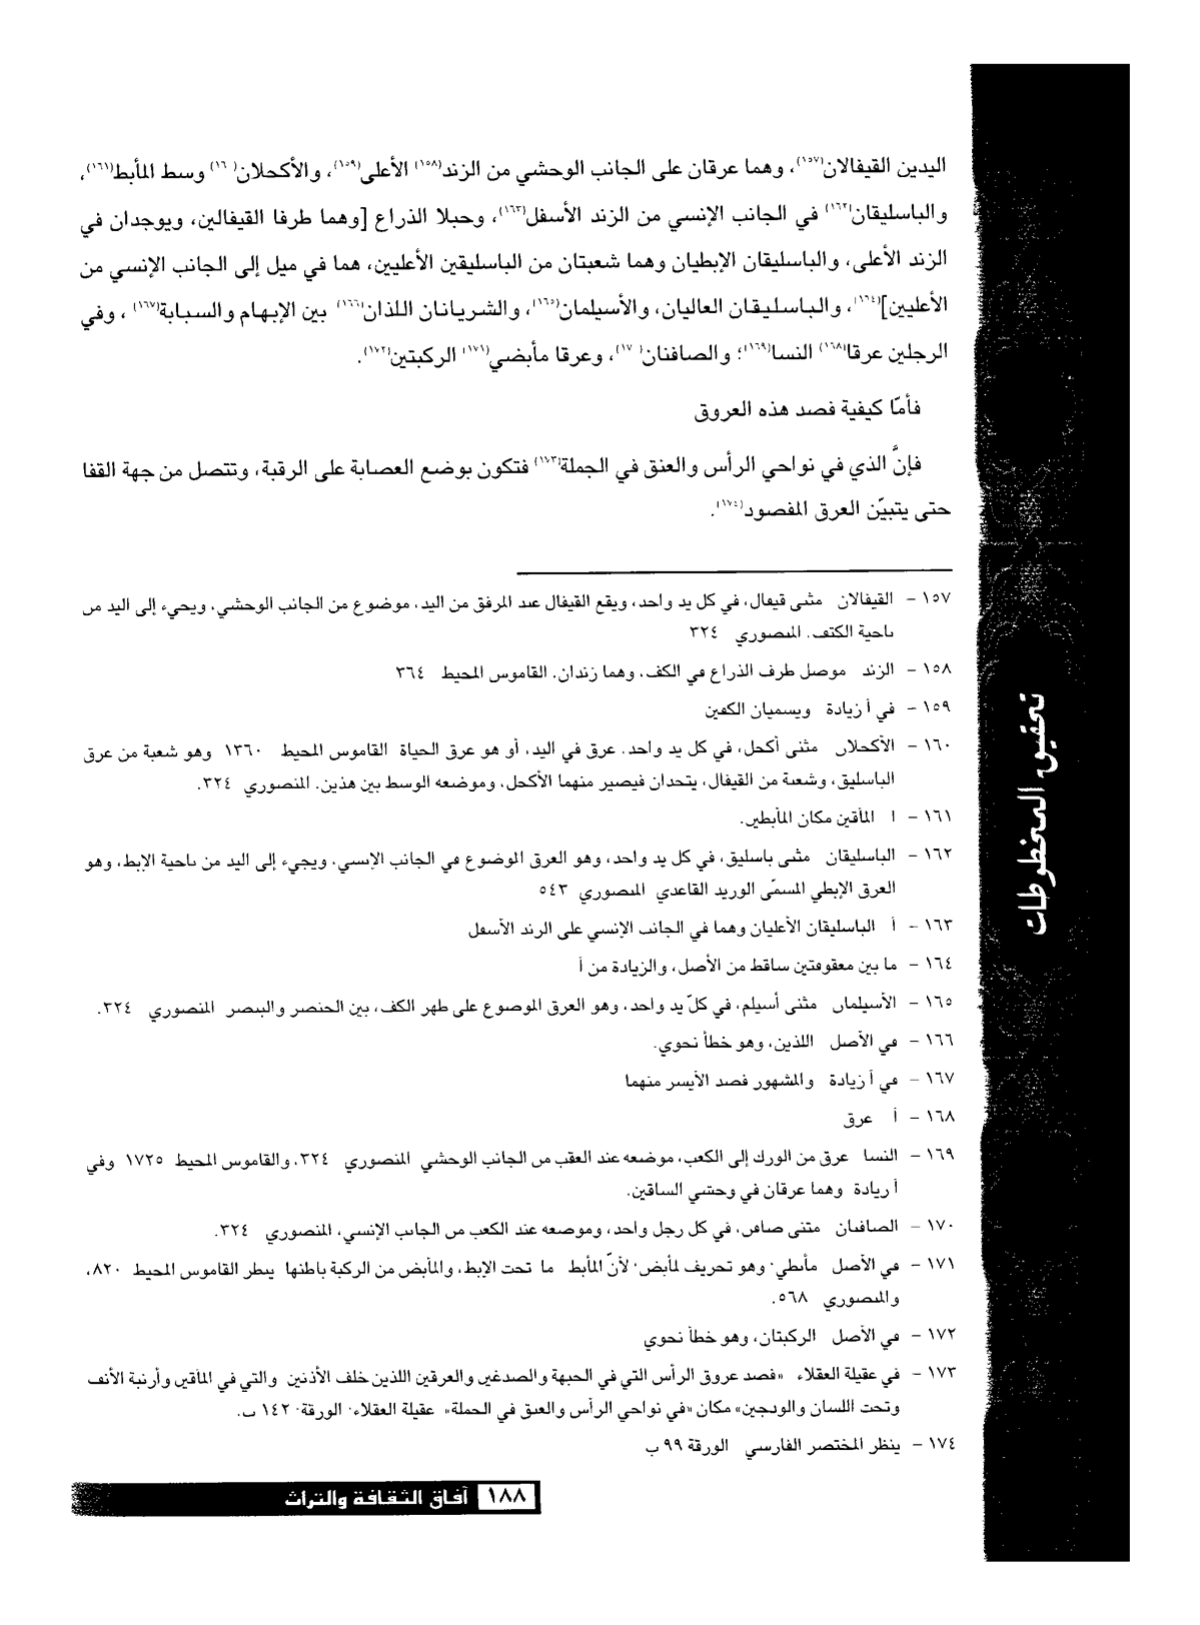 اليدين القيفالان(١٥٧)، وهما عرقان على الجانب الوحشي من الزند(١٥٨) الأعلى(١٥٩)، والأكحلان(١٦٠) وسط المأبط(١٦١)،
والباسليقان(١٦٢) في الجانب الإنسي من الزند الأسفل(١٦٣)، وحبلا الذراع [وهما طرفا القيفالين، ويوجدان في
الزند الأعلى، والباسليقان الإبطيان وهما شعبتان من الباسليقين الأعليين، هما في ميل إلى الجانب الإنسي من
الأعليين](١٦٤)، والباسليقان العاليان، والأسيلمان(١٦٥)، والشريانان اللذان(١٦٦) بين الإبهام والسبابة(١٦٧)، وفي
الرجلين عرقا(١٦٨) النسا(١٦٩)؛ والصافنان(١٧٠)، وعرقا مأبضي(١٧١) الركبتين(١٧٢).
فأمّا كيفية فصد هذه العروق
فإنَّ الذي في نواحي الرأس والعنق في الجملة(١٧٣) فتكون بوضع العصابة على الرقبة، وتتصل من جهة القفا
حتى يتبيّن العرق المفصود(١٧٤).
١٥٧ - القيفالان مثنى قيفال، في كل يد واحد، ويقع القيفال عند المرفق من اليد، موضوع من الجانب الوحشي، ويجيء إلى اليد من
ناحية الكتف. المنصوري ٣٢٤
١٥٨ - الزند موصل طرف الذراع في الكف، وهما زندان. القاموس المحيط ٣٦٤
١٥٩ - في أ زيادة ويسميان الكفين
١٦٠ - الأكحلان مثنى أكحل، في كل يد واحد. عرق في اليد، أو هو عرق الحياة القاموس المحيط ١٣٦٠ وهو شعبة من عرق
الباسليق، وشعبة من القيفال، يتحدان فيصير منهما الأكحل، وموضعه الوسط بين هذين. المنصوري ٣٢٤.
١٦١ - أ المأقين مكان المأبطين.
١٦٢ - الباسليقان مثنى باسليق، في كل يد واحد، وهو العرق الموضوع في الجانب الإنسي، ويجيء إلى اليد من ناحية الإبط، وهو
العرق الإبطي المسمّى الوريد القاعدي المنصوري ٥٤٣
١٦٣ - أ الباسليقان الأعليان وهما في الجانب الإنسي على الزند الأسفل
١٦٤ - ما بين معقوفتين ساقط من الأصل، والزيادة من أ
١٦٥ - الأسيلمان مثنى أسيلم، في كلّ يد واحد، وهو العرق الموضوع على ظهر الكف، بين الخنصر والبنصر المنصوري ٣٢٤.
١٦٦ - في الأصل اللذين، وهو خطأ نحوي.
١٦٧ - في أ زيادة والمشهور فصد الأيسر منهما
١٦٨ - أ عرق
١٦٩ - النسا عرق من الورك إلى الكعب، موضعه عند العقب من الجانب الوحشي المنصوري ٣٢٤، والقاموس المحيط ١٧٢٥ وفي
أ زيادة وهما عرقان في وحشي الساقين.
١٧٠ - الصافنان مثنى صافن، في كل رجل واحد، وموضعه عند الكعب من الجانب الإنسي، المنصوري ٣٢٤.
١٧١ - في الأصل مأبطي، وهو تحريف لمأبض، لأنّ المأبط ما تحت الإبط، والمأبض من الركبة باطنها ينظر القاموس المحيط ٨٢٠،
والمنصوري ٥٦٨.
١٧٢ - في الأصل الركبتان، وهو خطأ نحوي
١٧٣ - في عقيلة العقلاء «فصد عروق الرأس التي في الجبهة والصدغين والعرقين اللذين خلف الأذنين والتي في المأقين وأرنبة الأنف
وتحت اللسان والودجين» مكان «في نواحي الرأس والعنق في الجملة» عقيلة العقلاء، الورقة ١٤٢ ب.
١٧٤ - ينظر المختصر الفارسي الورقة ٩٩ ب
تحقيق المخطوطات
١٨٨ آفاق الثقافة والتراث